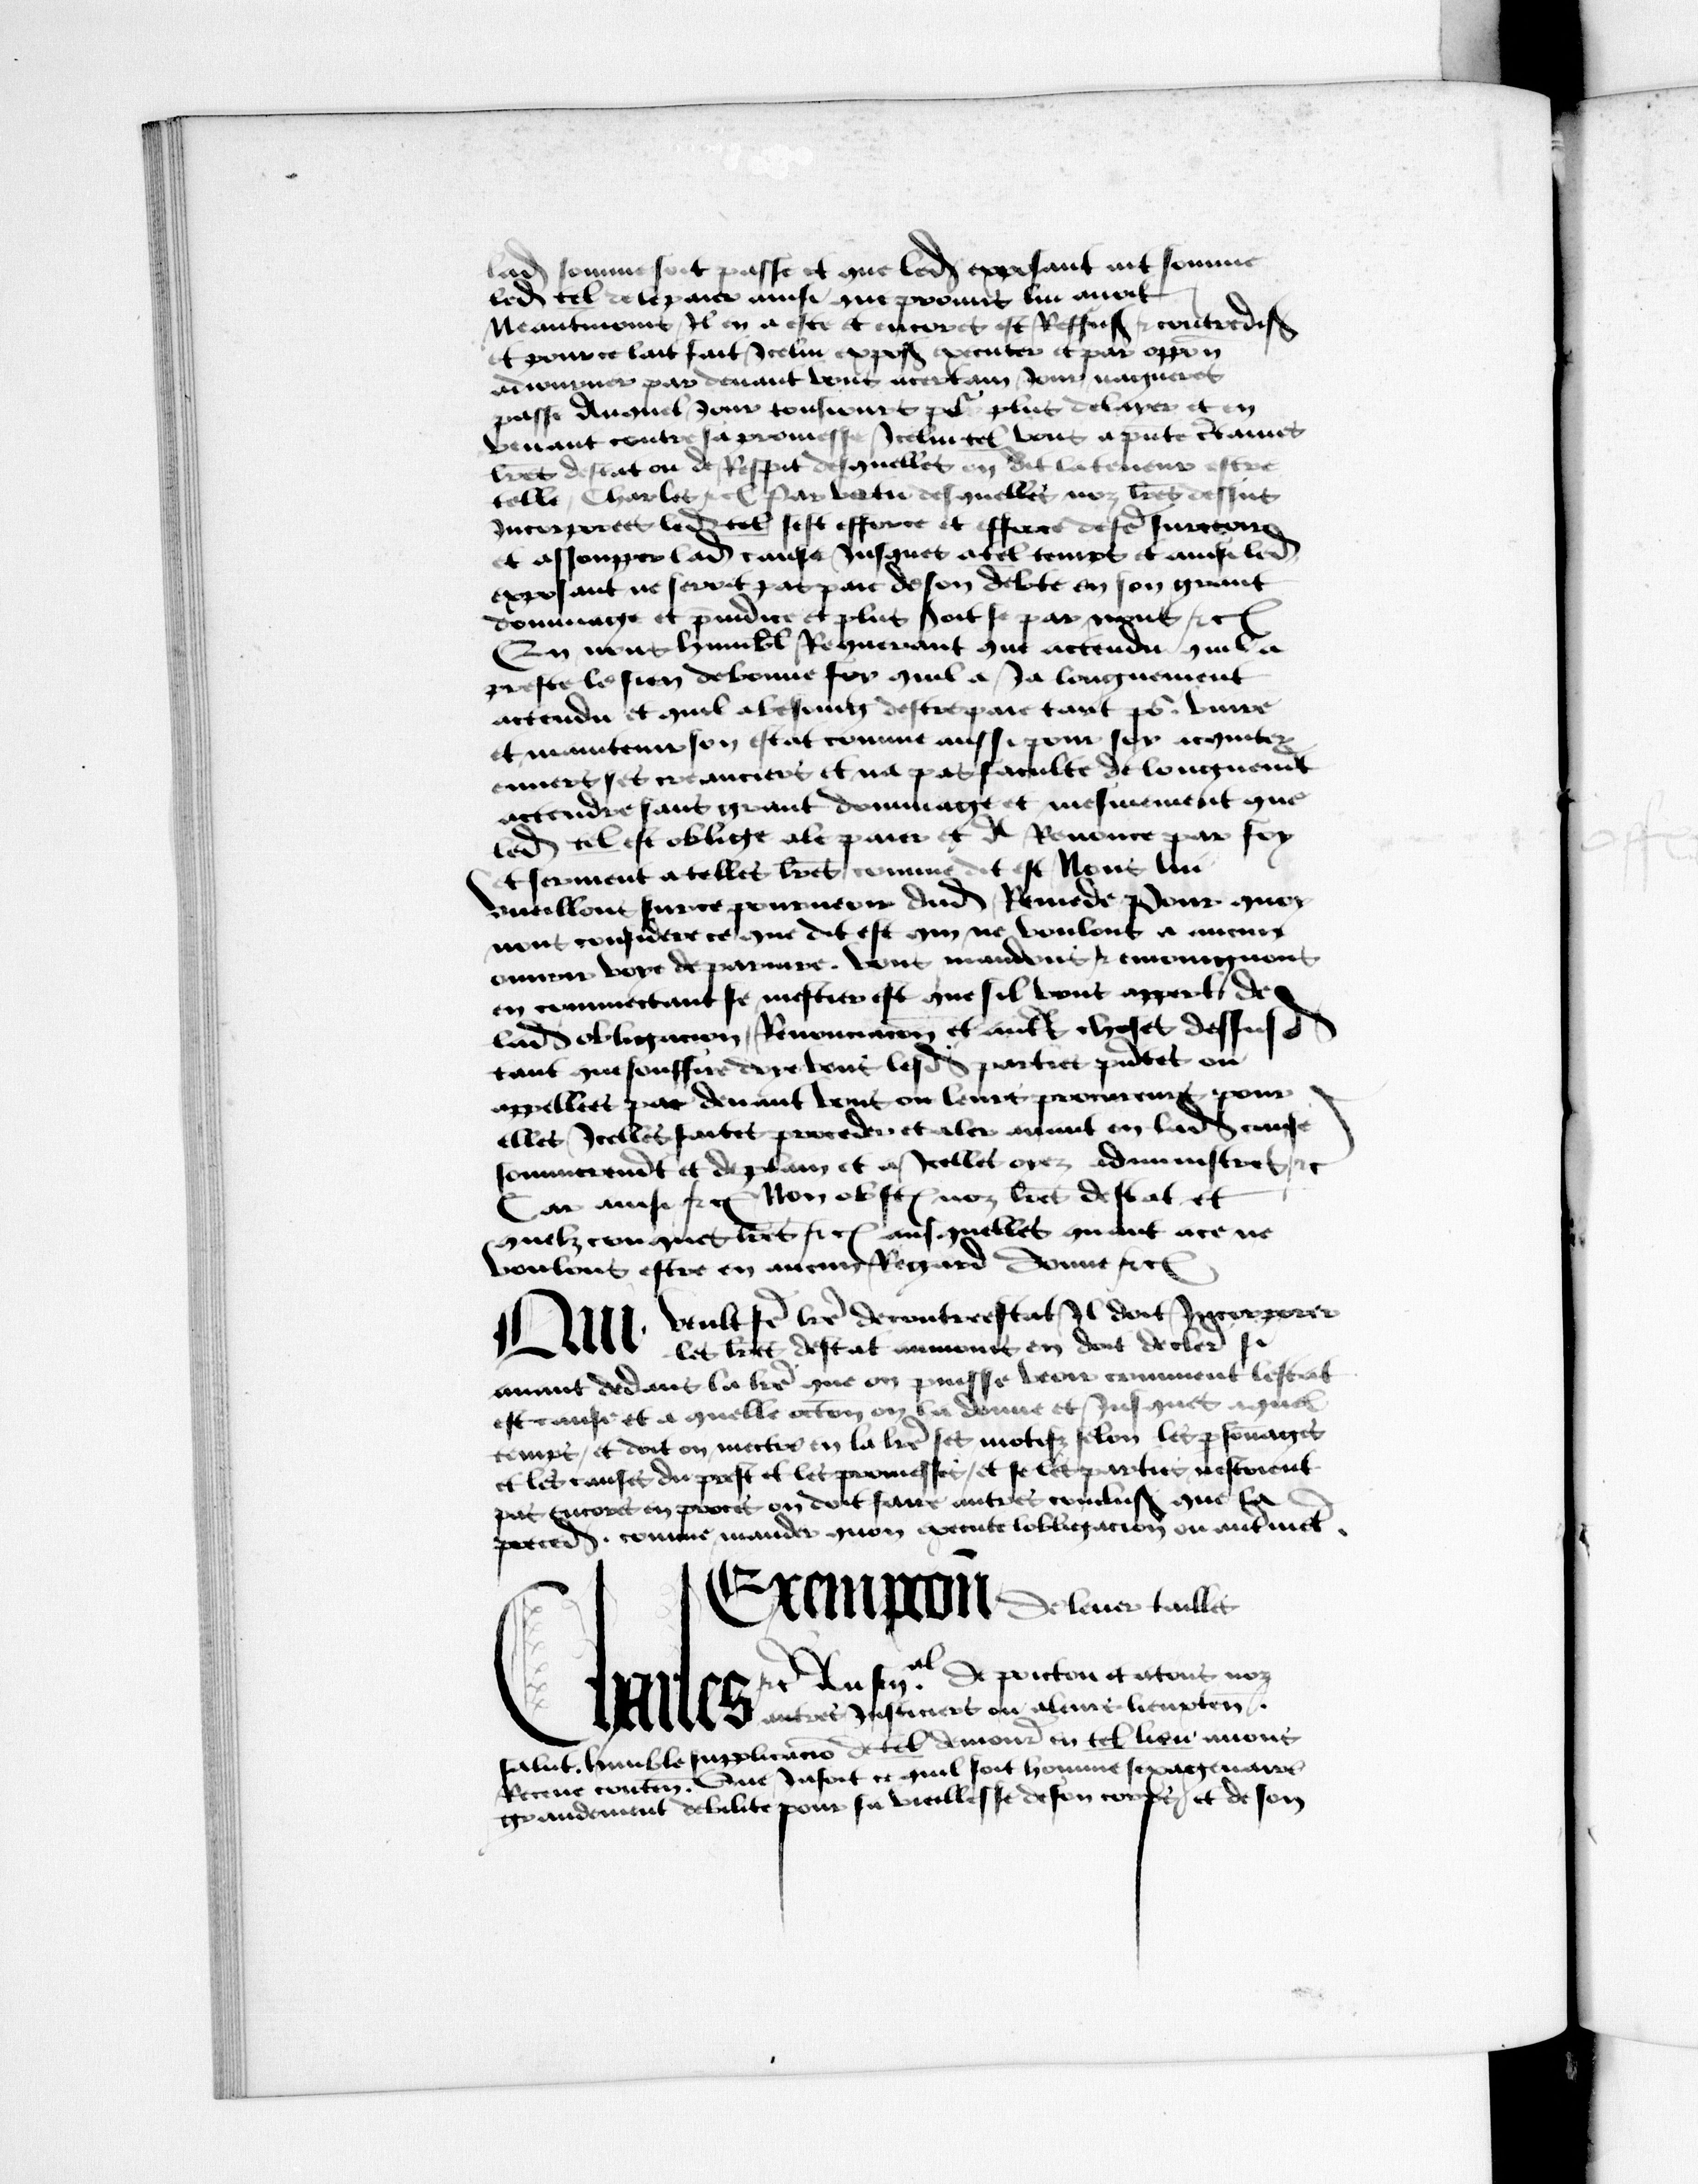 lad somme soit passe et que led exposant ait somme
led tel de le paier ainsi que promis lui auoit
Neantmoins Il en a este et encores est Reffus et contredis
et pour ce lait fait Icelui expos executer et par oppon
adiourner par deuant vous a certain Jour nagueres
passe Auquel Jour tousiours pour plus delayer et en
venant contre sa promesse Icelui tel vous a pnte ctaines
lres destat ou de Respit desquelles on dit la teneur estre
telle Charles etc Par vertu desquelles noz lres dessus
Incorporees led tel sest efforce et efforce de fe surceoir
et assoupper lad cause Jusques a tel temps et ainsi led
exposant ne seroit pas paie de son debte en son grant
dommage et preiudice et plus soit se par nous etc
En nous humbl Requerant que actendu quil a
preste le sien de bonne foy quil a Ja longuement
actendu et quil a besoing destre paie tant po viure
et maintenir son estat comme aussi pour soy aquiter
enuers ses creanciers et na pas faculte de longuemt
actendre sans grant dommage et mesmement que
led tel est oblige a le paier et A Renonce par foy
et serment a telles lres comme dit est Nous lui
vueillons sur ce pourueoir dud Remede Pour quoy
nous considere ce que dit est qui ne voulons a aucun
ouurir voye de pariure. vous mandons et enioignons
en commectant se mestier est que sil vous appert de
lad obligacion Renonciacon et autres choses dessusd
tant que souffire doye vous lesd parties pntes ou
appellees par deuant vous ou leurs procureurs pour
elles Icelles faites proceder et aler auant en lad cause
sommeremt et de plain et a Icelles oyez administrer etc
Car ainsi etc Non obst noz lres destat et
quelzconques lres etc ausquelles quant a ce ne
voulons estre en aucun Regard Donne etc
Qui veult fe lre de contreestat Il doit Incorporer
les lres destat aumoins en doit decler si
auant dedans la lre que on puisse veoir comment lestat
est cause et a quelle occon on la donne et Jusques a quel
temps / et doit on mectre en la lre ses motifz selon les psonnages
et les causes du prest et les promesses / et se les parties nestoient
pas encores en proces on doit faire autres conclus que la
preced. comme mander quon execute lobligacion ou autremet.
Exempcon De leuer tailles
Charles etc Au sen.al de poictou et a tous noz
autres Justiciers ou a leurs lieuxten.
salut. humble supplicacio de tel demour en tel lieu auons
Receue conten. Que Jasoit ce quil soit homme sexagenaire
grandement debilite pour sa vieillesse de son corps / et de son